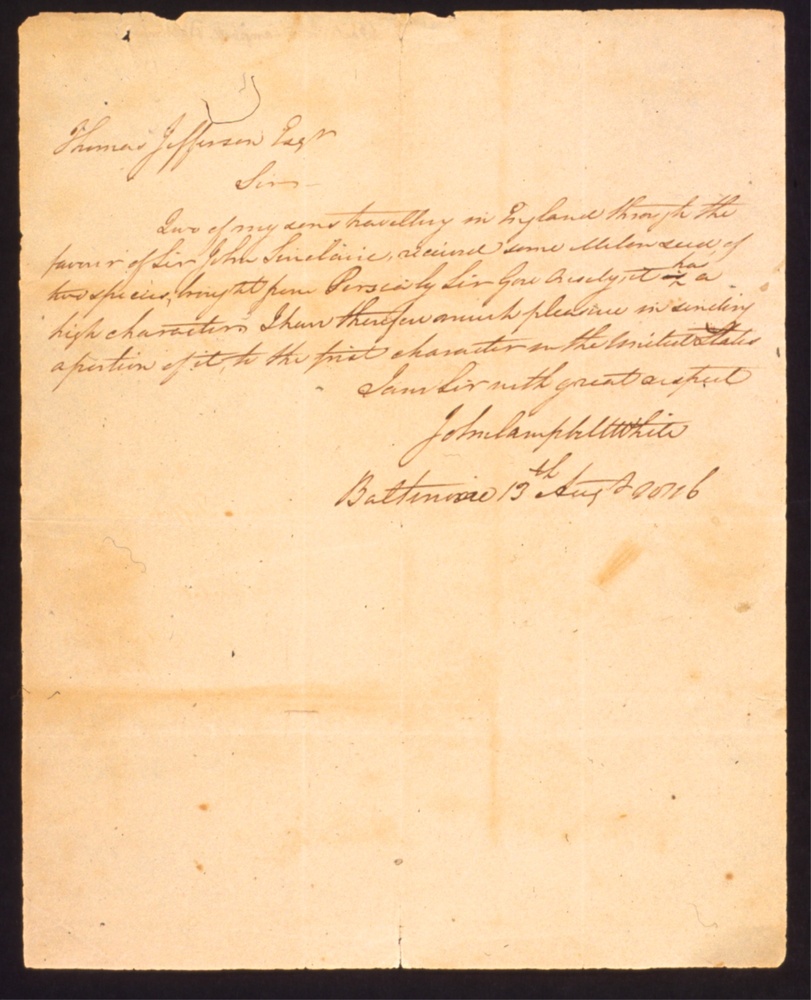 Thomas Jefferson Esqr
Sir
Two of my sons travelling in England through the
favour of Sir John Sinclaire, received some Melon seed of
two species, brought from Persia by Sir Gore Ousely, it has a
high character. I have therefore much pleasure in sending
a portion of it, to the first character in the United States
I am Sir with great respect
John Campbell White
Baltimore 13th Augt 1816